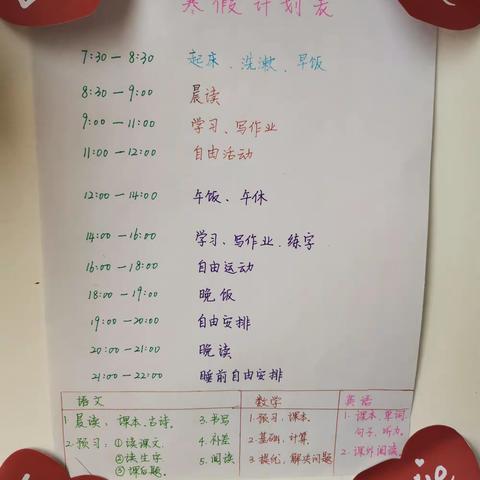 寒假计划表
7:30—8:30 起床、洗漱、早饭
8:30—9:00 晨读
9:00—11:00 学习、写作业
11:00—12:00 自由活动
12:00—14:00 午饭、午休
14:00—16:00 学习、写作业、练字
16:00—18:00 自由运动
18:00—19:00 晚饭
19:00—20:00 自由安排
20:00—21:00 晚读
21:00—22:00 睡前自由安排
语文
1 晨读:课本、古诗。
2. 预习:①读课文。
②读生字
③课后题。
3. 书写
4. 补差
5. 阅读
数学
1. 预习、课本。
2. 基础、计算。
3. 提优、解决问题
英语
1. 课本、单词
句子、听力。
2. 课外阅读。